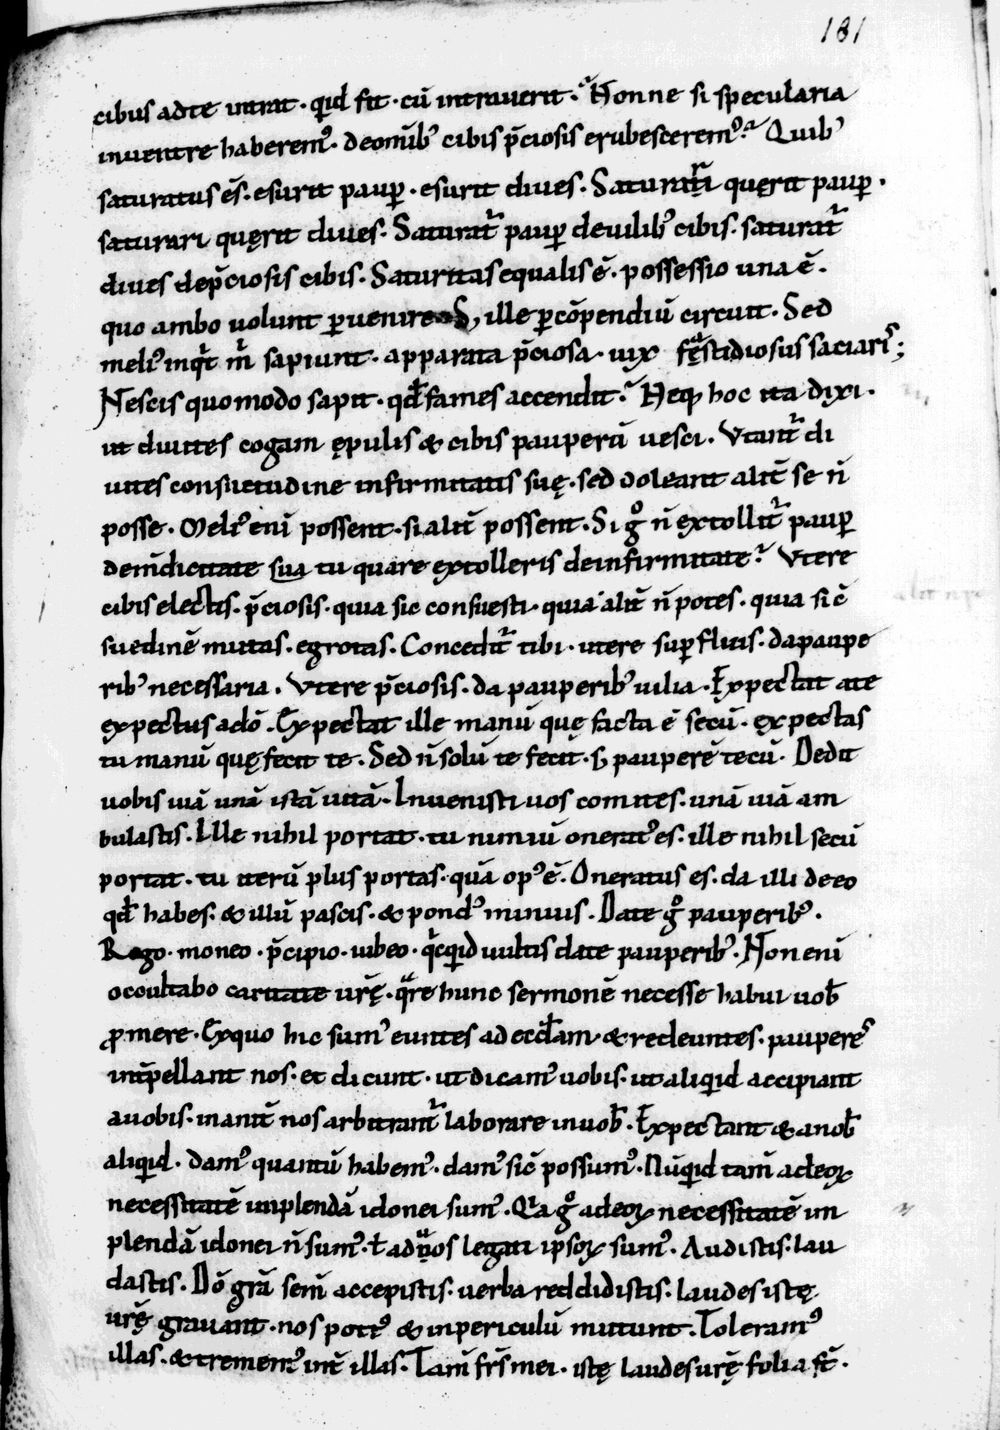 181
cibus ad te intrat · qͥd fit · cū intrauerit · Nonne si specularia
in uentre haberem᷒ · de omīb᷒ cibis p̄ciosis erubescerem᷒ · Quib᷒
saturatus ēs · esurit paup̱ · esurit diues · Saturari quęrit paup̱ ·
saturari quęrit diues · Saturat᷑ paup̱ de uilib᷒ cibis · saturat᷑
diues de p̄ciosis cibis · Saturitas equalis ē · possessio una ē ·
quo ambo uolunt p̱uenire · S; ille p̱ cōpendiū circuit · Sed
meli᷒ inqͥt m̍ sapiunt · apparata p̄ciosa · uix fastidiosus saciaris ;
Nescis quomodo sapit · qd̄ fames accendit · Neq; hoc ita dixi ·
ut diuites cogam ępulis & cibis pauperū uesci · Vtant᷑ di
uites consuetudine infirmitatis suę · sed doleant alit̄ se ñ
posse · Meli᷒ eni possent · si alit̄ possent · Si gͦ ñ extollit᷑ paup̱
de mēdicitate sua tu quare extolleris de infirmitate · Vtere
cibis electis · p̄ciosis · quia sic consuesti · quia alit̄ ñ potes · quia si c̄
suedinē mutas · egrotas · Concedit᷑ tibi · utere sup̱fluis · da paupe
rib᷒ necessaria · Vtere p̄ciosis · da pauperib᷒ uilia · Expectat a te
expectus a dō · Expectat ille manū quę facta ē secū · expectas
tu manū quę fecit te · Sed ñ solū te fecit · s; pauperē tecū · Dedit
uobis uiā unā istā uitā · Inuenisti uos comites · unā uiā am
bulastis · Ille nihil portat · tu nimiū onerat᷒ es · ille nihil secū
portat · tu iterū plus portas · quā op᷒ ē · Oneratus es · da illi de eo
qd̄ habes · & illū pascis · & pond᷒ minuis · Date gͦ pauperib᷒ ·
Rogo · moneo · p̄cipio · iubeo · qͥcqͥd uultis date pauperib᷒ · Non eni
occultabo caritate urę̄ · qͣre hunc sermonē necesse habui uob̄
ꝓmere · Ex quo hic sum᷒ euntes ad eccl̄am · & redeuntes · pauperes
int̄pellant nos · et dicunt · ut dicam᷒ uobis · ut aliqͥd accipiant
a uobis · inanit̄ nos arbitrant᷑ laborare in uob̄ · Expectant & a nob̄
aliqͥd · dam᷒ quantū habem᷒ · dam᷒ sic̄ possum᷒ · Nūqͥd tam̄ ad eoꝝ
necessitatē implendā idonei sum᷒ · Qͥa gͦ ad eoꝝ necessitatē im
plendā idonei ñ sum᷒ · ł ad uͣos legati ip̄soꝝ sum᷒ · Audistis · lau
dastis · Dō grā sem̄ accepistis · uerba reddidistis · laudes istę
urę̄ grauant · nos poti᷒ & in periculū mittunt · Toleram᷒
illas · & tremem᷒ int̄ illas · Tam̄ frs̄ mei · istę laudes urę̄ folia st̄ ·